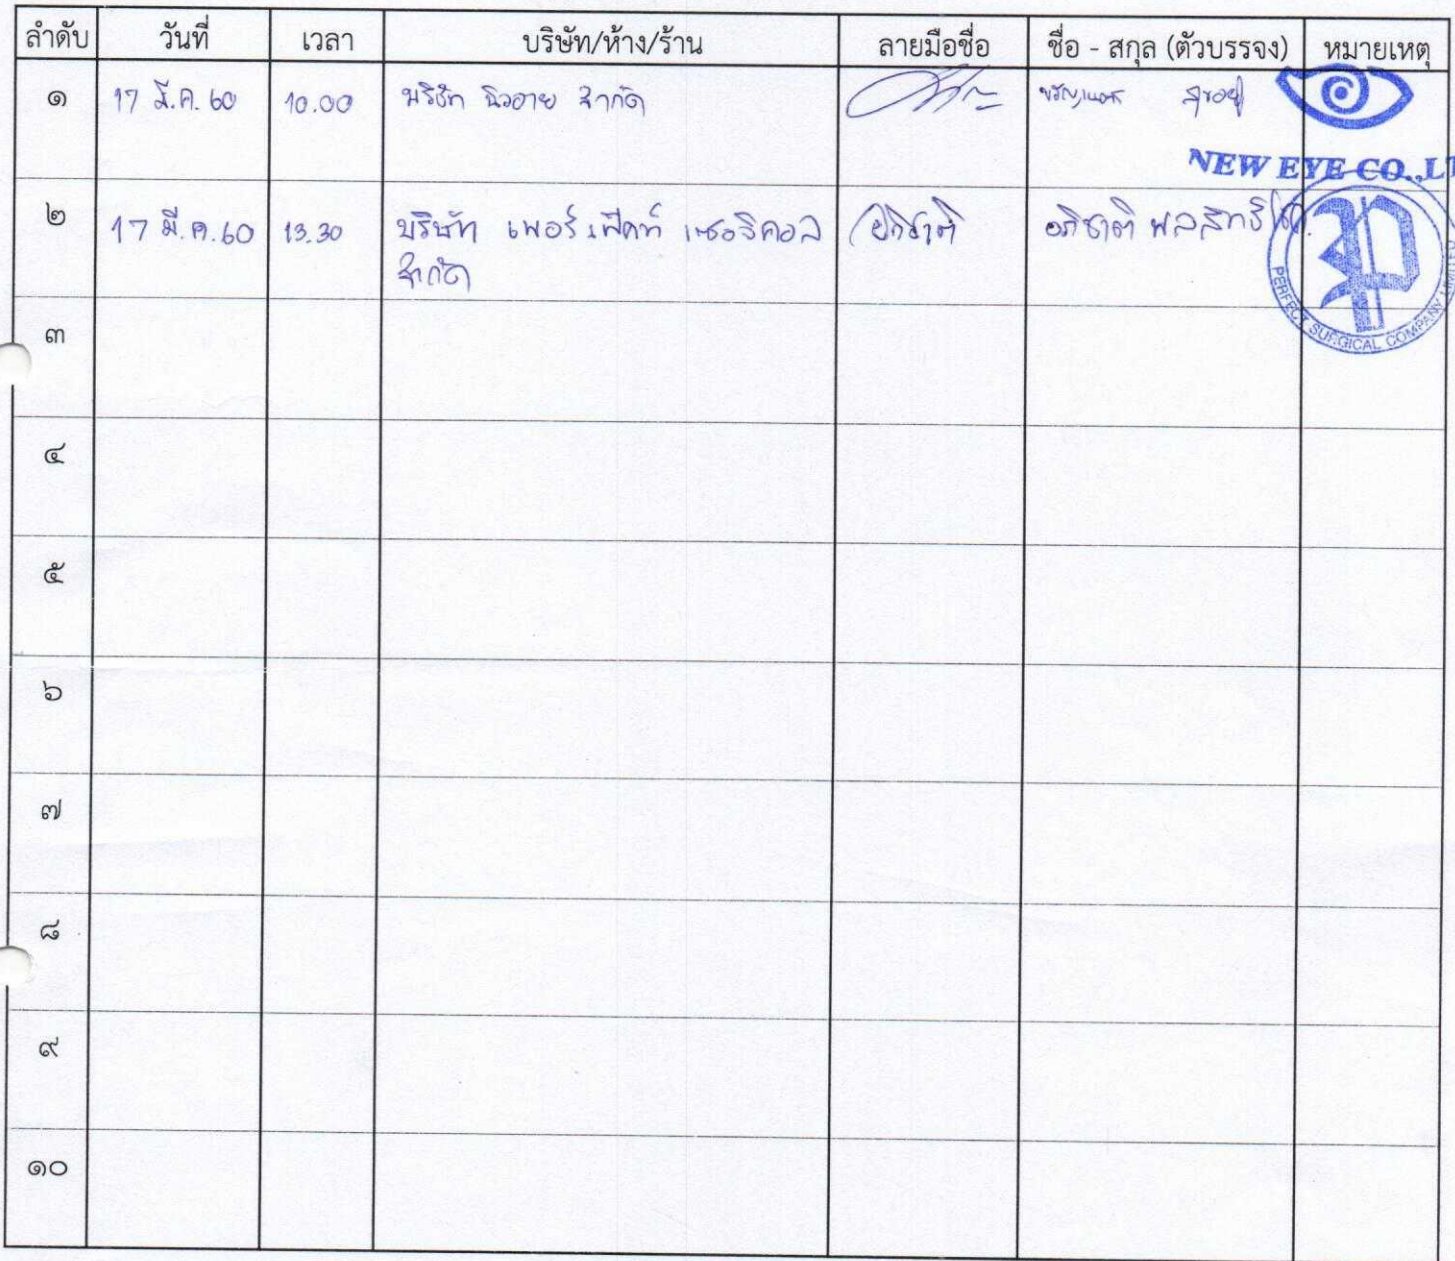 ลำดับ วันที่ เวลา บริษัท/ห้าง/ร้าน ลายมือชื่อ ชื่อ - สกุล (ตัวบรรจง) หมายเหตุ
๑ 17 มี.ค. 60 10.00 บริษัท นิวอาย จำกัด
NEW EYE CO.,LT
๒ 17 มี.ค. 60 13.30 บริษัท เพอร์เฟ็คท์ เซอจิคอล อภิชาติ อภิชาติ
จำกัด
PERFECT SURGICAL COMPANY LIMITED
๓
๔
๕
๖
๗
๘
๙
๑๐